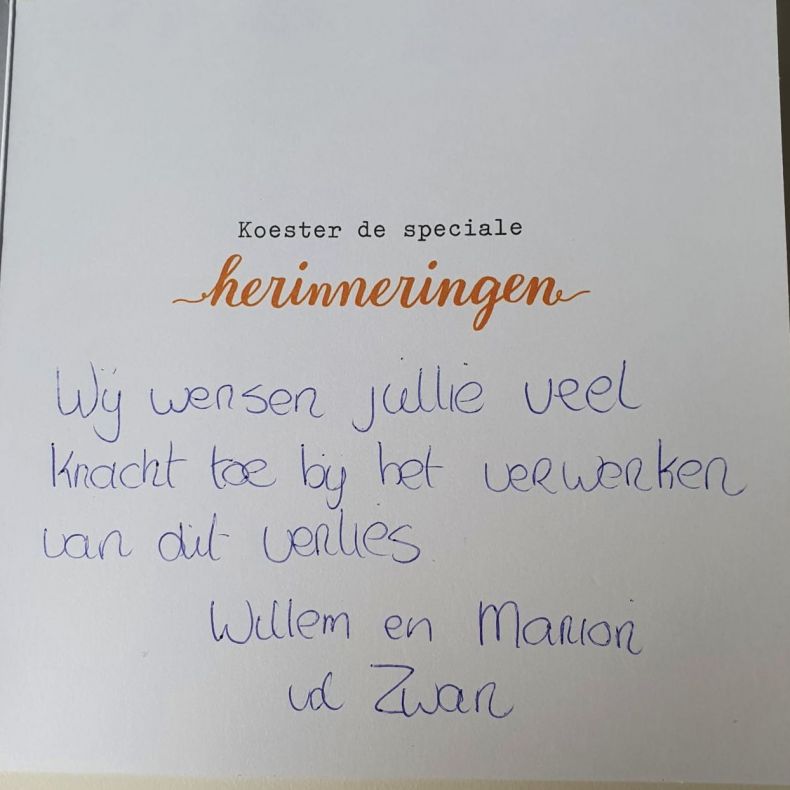 Koester de speciale
herinneringen
Wij wensen jullie veel
kracht toe bij het verwerken
van dit verlies.
Willem en Marion
vd Zwan